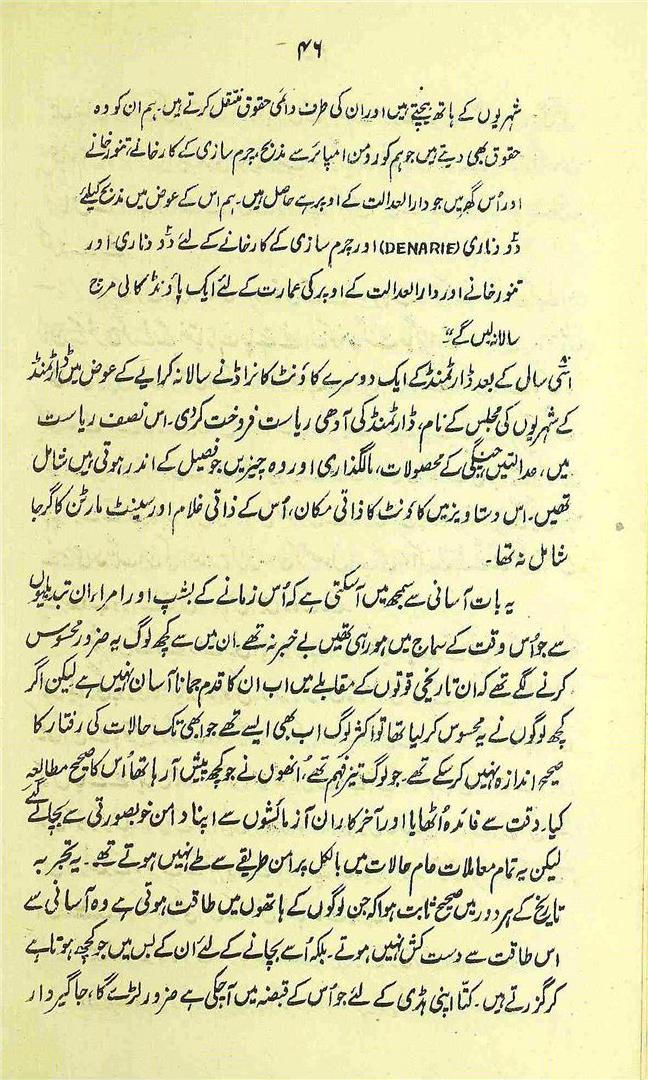 ۴۶
شہریوں کے ہاتھ بیچتے ہیں اور ان کی طرف دائمی حقوق منتقل کرتے ہیں۔ ہم ان کو وہ
حقوق بھی دیتے ہیں جو ہم کو رومن امپائر سے مذبح، چرم سازی کے کارخانے، تنور خانے
اور اُس گھر میں جو دارالعدالت کے اوپر ہے حاصل ہیں۔ ہم اس کے عوض میں مذبح کیلئے
دو دناری (DENARIE) اور چرم سازی کے کارخانے کے لئے دو دناری اور
تنور خانے اور دارالعدالت کے اوپر کی عمارت کے لئے ایک پاؤنڈ کالی مرچ
سالانہ لیں گے"
اسّی سال کے بعد ڈارٹمنڈ کے ایک دوسرے کاؤنٹ کانراڈ نے سالانہ کرایے کے عوض میں ڈارٹمنڈ
کے شہریوں کی مجلس کے نام، ڈارٹمنڈ کی آدھی ریاست فروخت کر دی۔ اس نصف ریاست
میں، عدالتیں، چنگی کے محصولات، مالگذاری اور وہ چیزیں جو فصیل کے اندر ہوتی ہیں شامل
تھیں۔ اس دستاویز میں کاؤنٹ کا ذاتی مکان، اُس کے ذاتی غلام اور سینٹ مارٹن کا گرجا
شامل نہ تھا۔
یہ بات آسانی سے سمجھ میں آسکتی ہے کہ اُس زمانے کے بشپ اور امراء ان تبدیلیوں
سے جو اُس وقت کے سماج میں ہو رہی تھیں بے خبر نہ تھے۔ ان میں سے کچھ لوگ یہ ضرور محسوس
کرنے لگے تھے کہ ان تاریخی قوتوں کے مقابلے میں اب ان کا قدم جمانا آسان نہیں ہے لیکن اگر
کچھ لوگوں نے یہ محسوس کر لیا تھا تو اکثر لوگ اب بھی ایسے تھے جو ابھی تک حالات کی رفتار کا
صحیح اندازہ نہیں کرسکے تھے۔ جو لوگ تیز فہم تھے، اُنھوں نے جو کچھ پیش آرہا تھا اُس کا صحیح مطالعہ
کیا۔ وقت سے فائدہ اُٹھایا اور آخر کار ان آزمائشوں سے اپنا دامن خوبصورتی سے بچا لے گئے
لیکن یہ تمام معاملات عام حالات میں بالکل پرامن طریقے سے طے نہیں ہوتے تھے۔ یہ تجربہ
تاریخ کے ہر دور میں صحیح ثابت ہوا کہ جن لوگوں کے ہاتھوں میں طاقت ہوتی ہے وہ آسانی سے
اس طاقت سے دست کش نہیں ہوتے۔ بلکہ اُسے بچانے کے لئے ان کے بس میں جو کچھ ہوتا ہے
کر گزرتے ہیں۔ کتّا اپنی ہڈی کے لئے جو اُس کے قبضہ میں آچکی ہے ضرور لڑے گا، جاگیردار